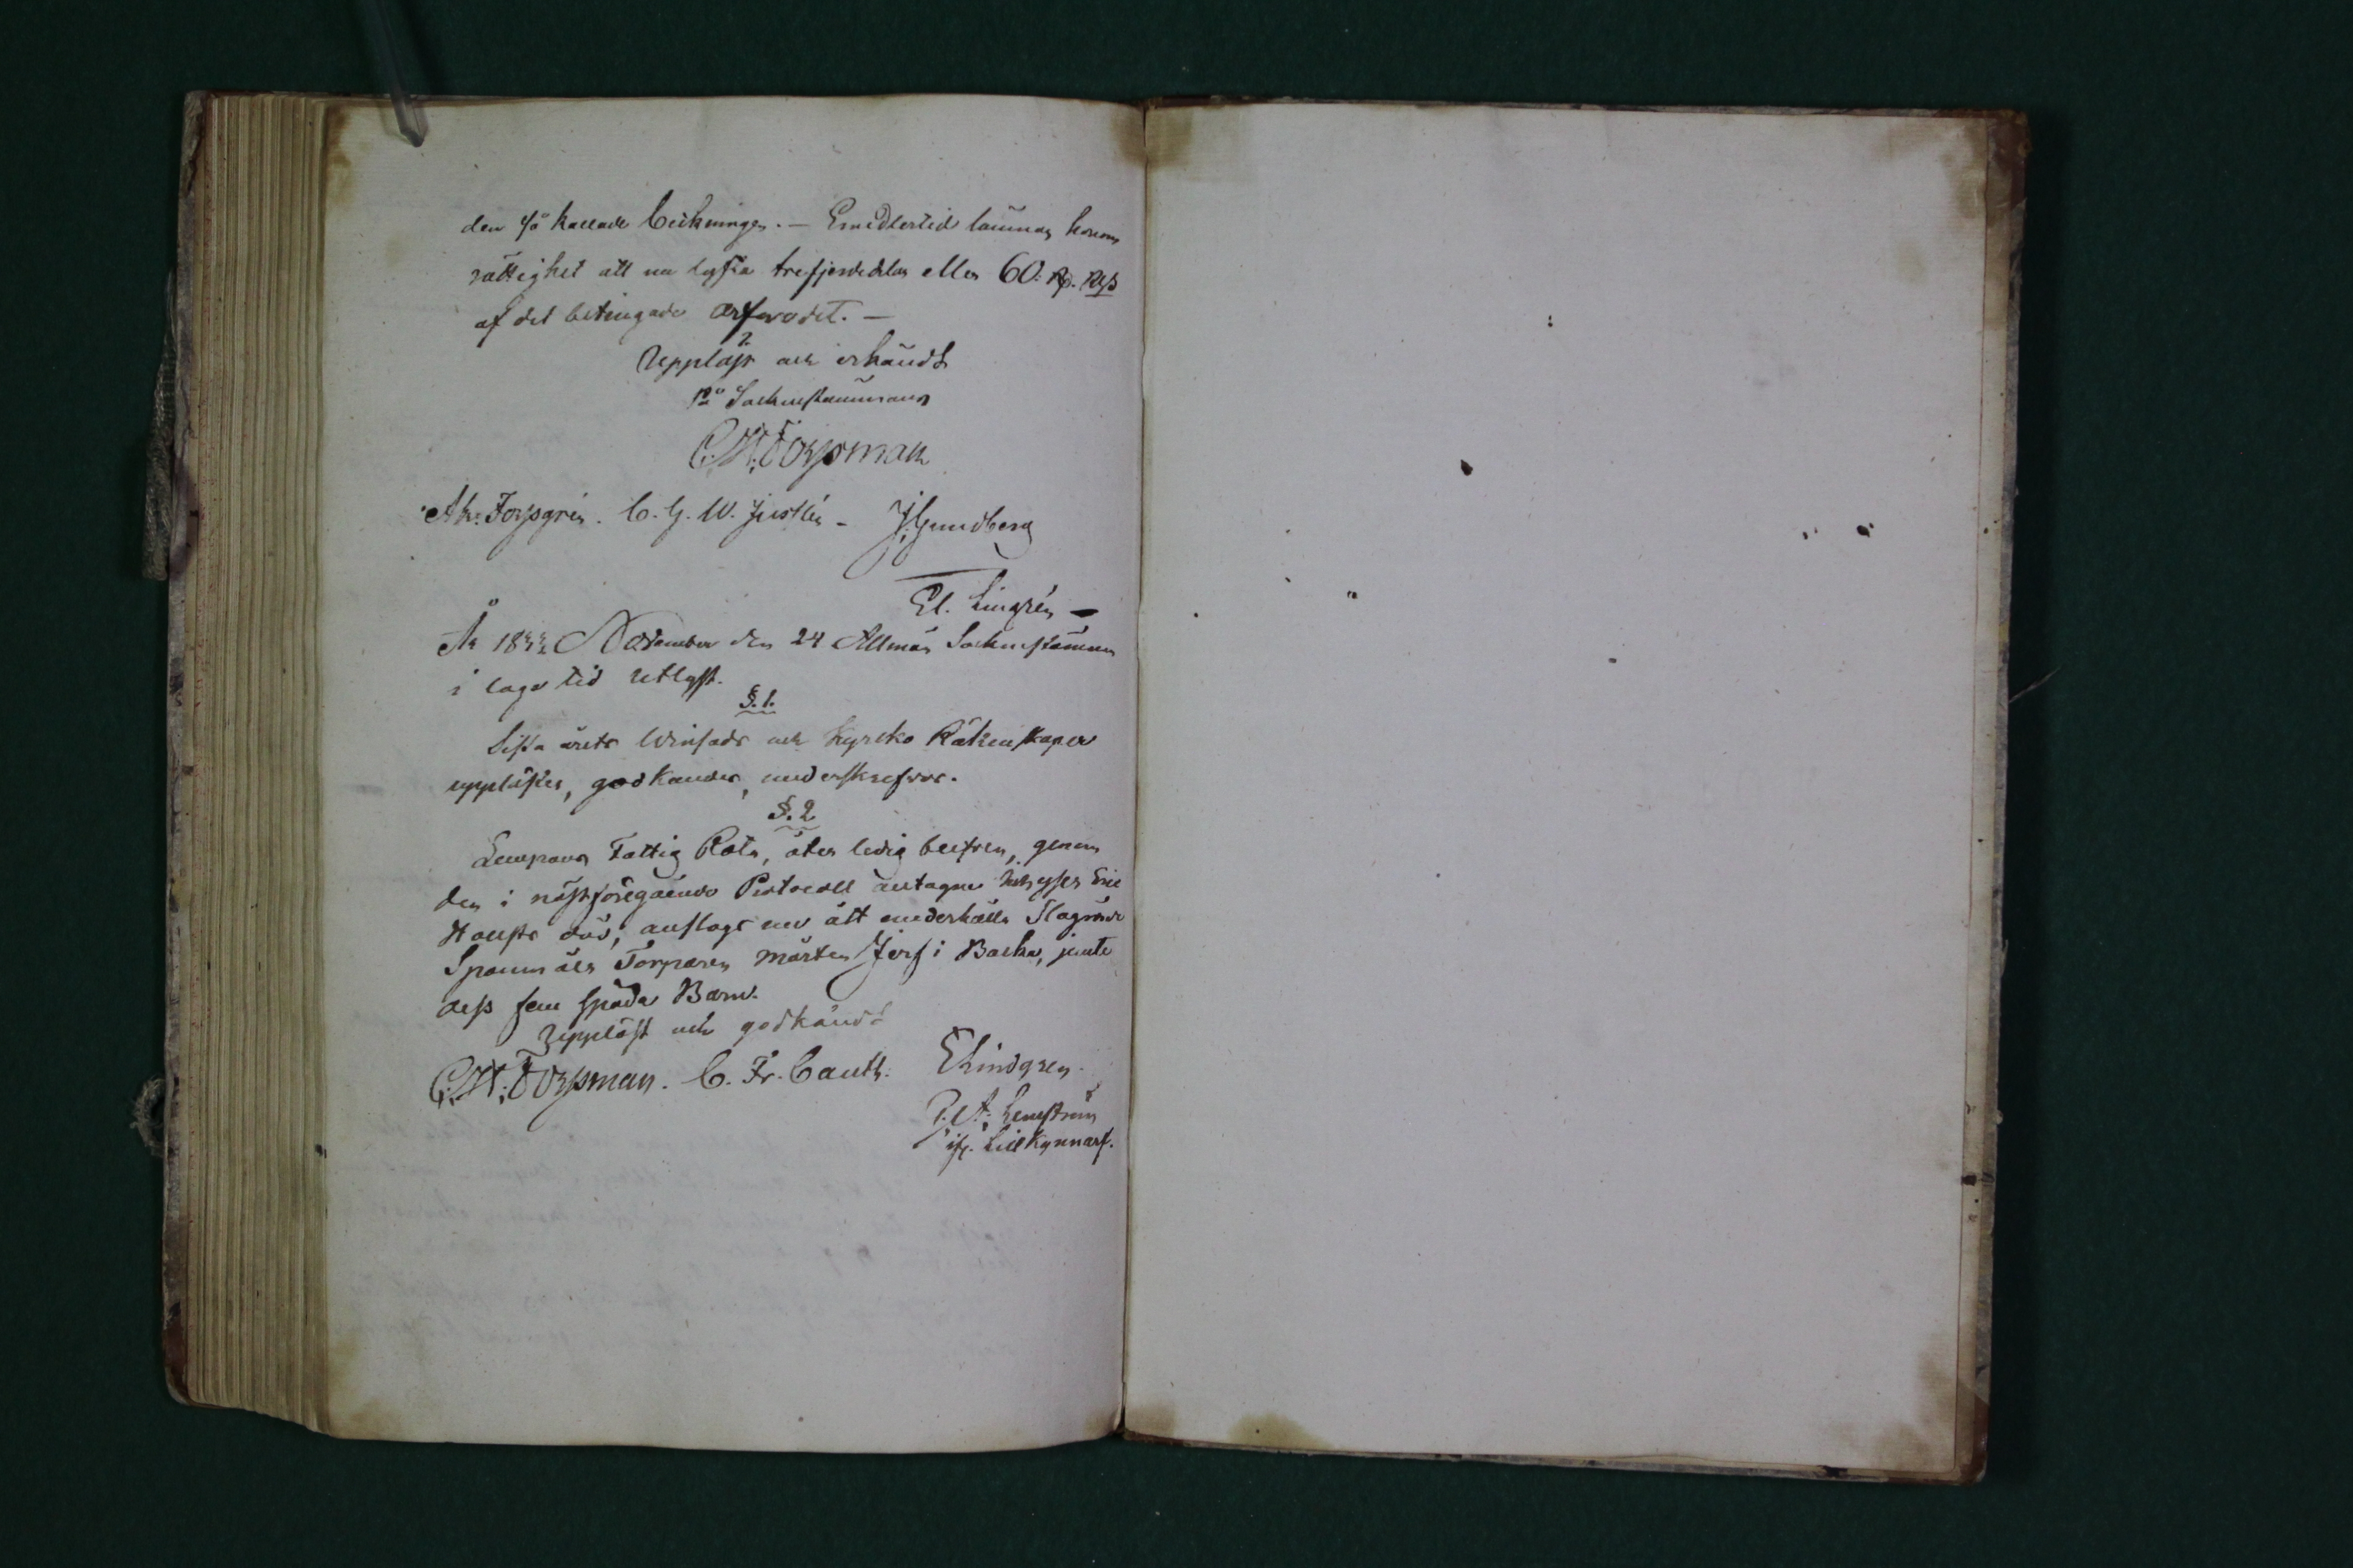 den så kallade beckningen. — Emedlertid lämnas honom
rättighet att nu lyfta trefjerdedelar eller 60: R. Rgs
af det betingade arfvodet. —
Uppläst och erkändt
på Sockenstämman
C. H. Forssman
Ah: Forssgrén. C. G. W. Justlén - J. Gundberg
El. Lingrén —
År 1842 November den 24 Allmän Sockenstämma
i laga tid utlyst.
§. 1.
Sista årets Winfads och Kyrcko Räkenskaper
upplästes, godkändes, underskrefvos.
§. 2
Lempans Fattig Rota, åter ledig blefven, genom
den i nästföregående Protocoll antagne Inhyses Eric
Hollsts död, anslogs nu att underhålla Flagrände
Spannmåls Torparen Mårten Jerf i Backa, jemte
dess fem späda Barn.
Uppläst och godkändt
C. H. Forssman. C. Fr. Cauth. E Lindgren.
P. A. Lemström
ifr. Lill Kynnarf.